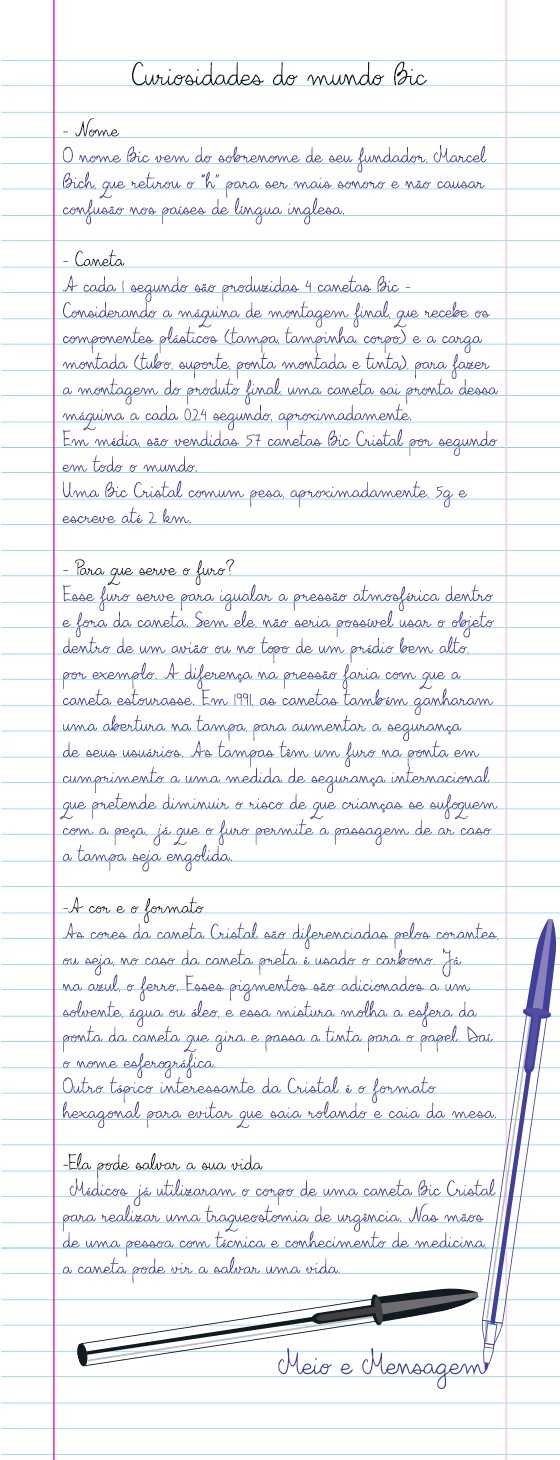 Curiosidades do mundo Bic
- Nome
O nome Bic vem do sobrenome de seu fundador, Marcel
Bich, que retirou o "h" para ser mais sonoro e não causar
confusão nos países de língua inglesa.
- Caneta
A cada 1 segundo são produzidas 4 canetas Bic -
Considerando a máquina de montagem final, que recebe os
componentes plásticos (tampa, tampinha, corpo) e a carga
montada (tubo, suporte, ponta montada e tinta), para fazer
a montagem do produto final, uma caneta sai pronta dessa
máquina a cada 0,24 segundo, aproximadamente.
Em média, são vendidas 57 canetas Bic Cristal por segundo
em todo o mundo.
Uma Bic Cristal comum pesa, aproximadamente, 5g e
escreve até 2 km.
- Para que serve o furo?
Esse furo serve para igualar a pressão atmosférica dentro
e fora da caneta. Sem ele, não seria possível usar o objeto
dentro de um avião ou no topo de um prédio bem alto,
por exemplo. A diferença na pressão faria com que a
caneta estourasse. Em 1991, as canetas também ganharam
uma abertura na tampa, para aumentar a segurança
de seus usuários. As tampas têm um furo na ponta em
cumprimento a uma medida de segurança internacional
que pretende diminuir o risco de que crianças se sufoquem
com a peça, já que o furo permite a passagem de ar caso
a tampa seja engolida.
-A cor e o formato
As cores da caneta Cristal são diferenciadas pelos corantes,
ou seja, no caso da caneta preta é usado o carbono. Já
na azul, o ferro. Esses pigmentos são adicionados a um
solvente, água ou óleo, e essa mistura molha a esfera da
ponta da caneta que gira e passa a tinta para o papel. Daí
o nome esferográfica.
Outro tópico interessante da Cristal é o formato
hexagonal para evitar que saia rolando e caia da mesa.
-Ela pode salvar a sua vida
Médicos já utilizaram o corpo de uma caneta Bic Cristal
para realizar uma traqueostomia de urgência. Nas mãos
de uma pessoa com técnica e conhecimento de medicina,
a caneta pode vir a salvar uma vida.
Meio e Mensagem